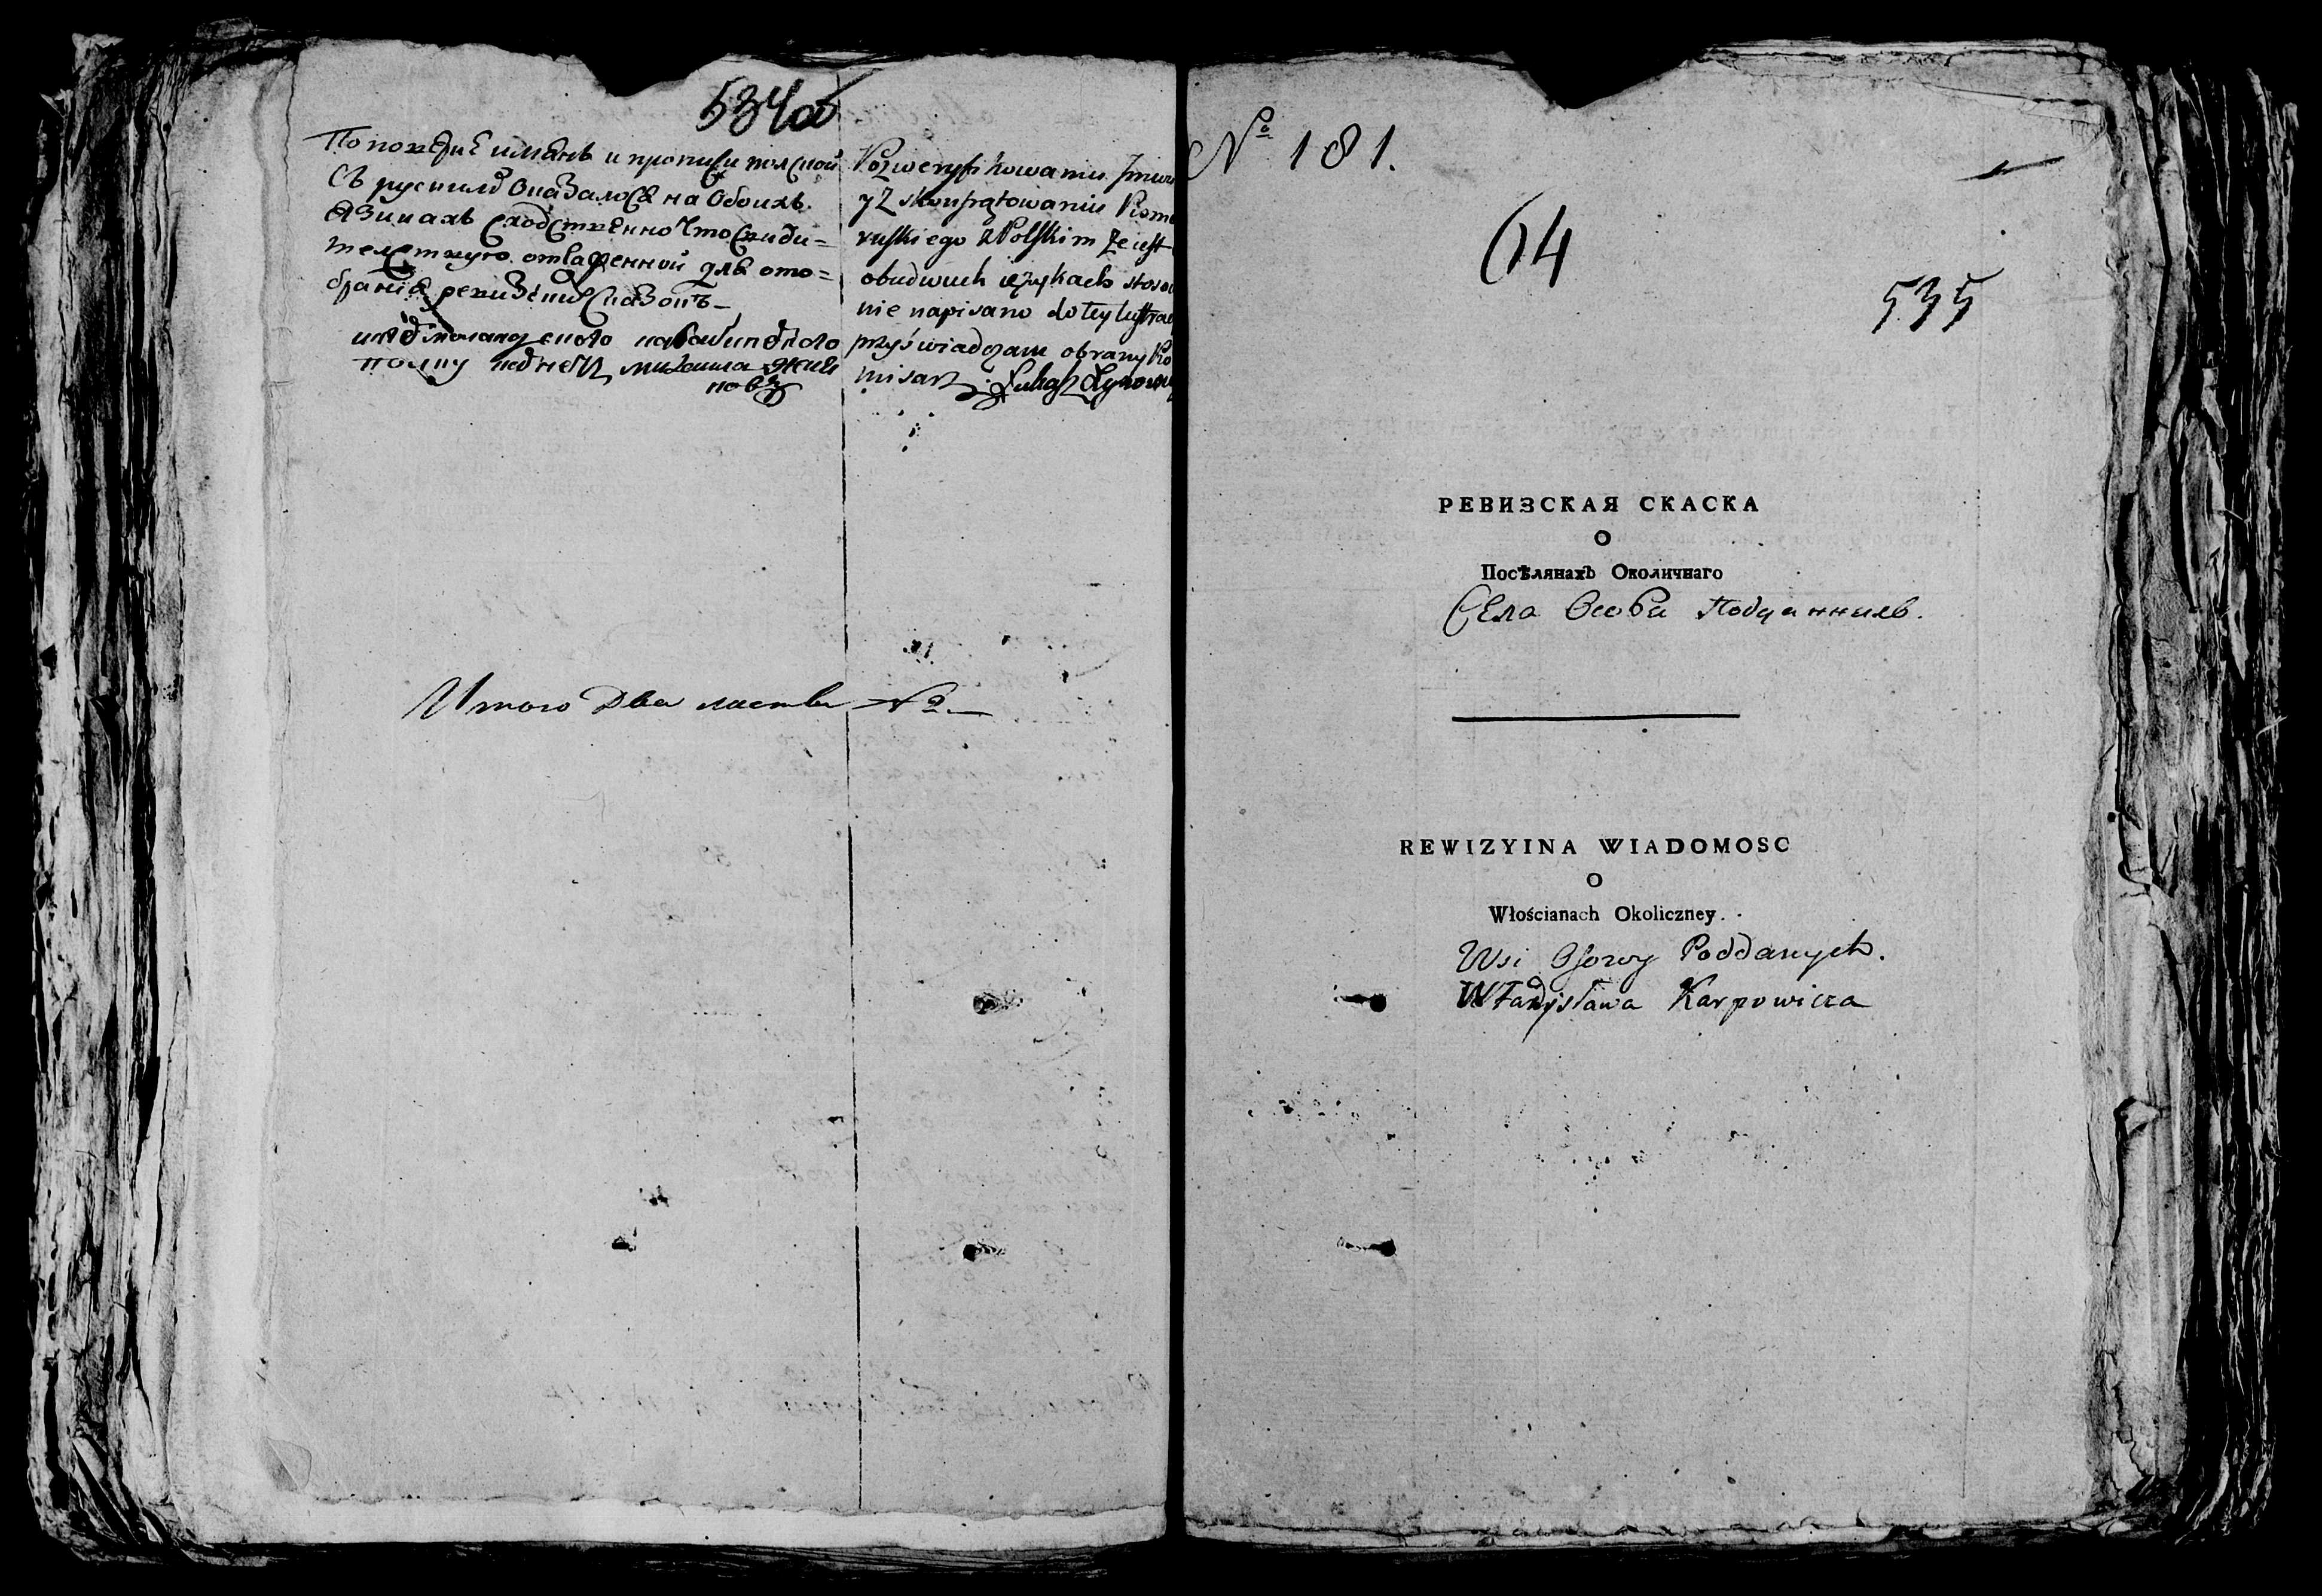 534об
По поверке имянъ и прописи полской
съ рускимъ оказалося на обоихъ
языкахъ сходственно что свиде=
телствую отваженной для ото=
брания ревизскихъ сказокъ
полку
Pozweryfikowaniu Jmion
y Zskonfrątowaniu Pisma
ruskiego z Polskim ze iest
obudwuch ięzykach stosow
nie napisano do tey lustracyi
przyświadczam obrany Ko
misarz Łukasz
Итого два листа № 2.
№ 181.
64
535
РЕВИЗСКАЯ СКАСКА
О
Посѣлянахъ Околичнаго
Села Осовы Подданныхъ.
REWIZYINA WIADOMOSC
O
Włościanach Okoliczney.
Wsi Osowy Poddanych.
Władysława Karpowicza